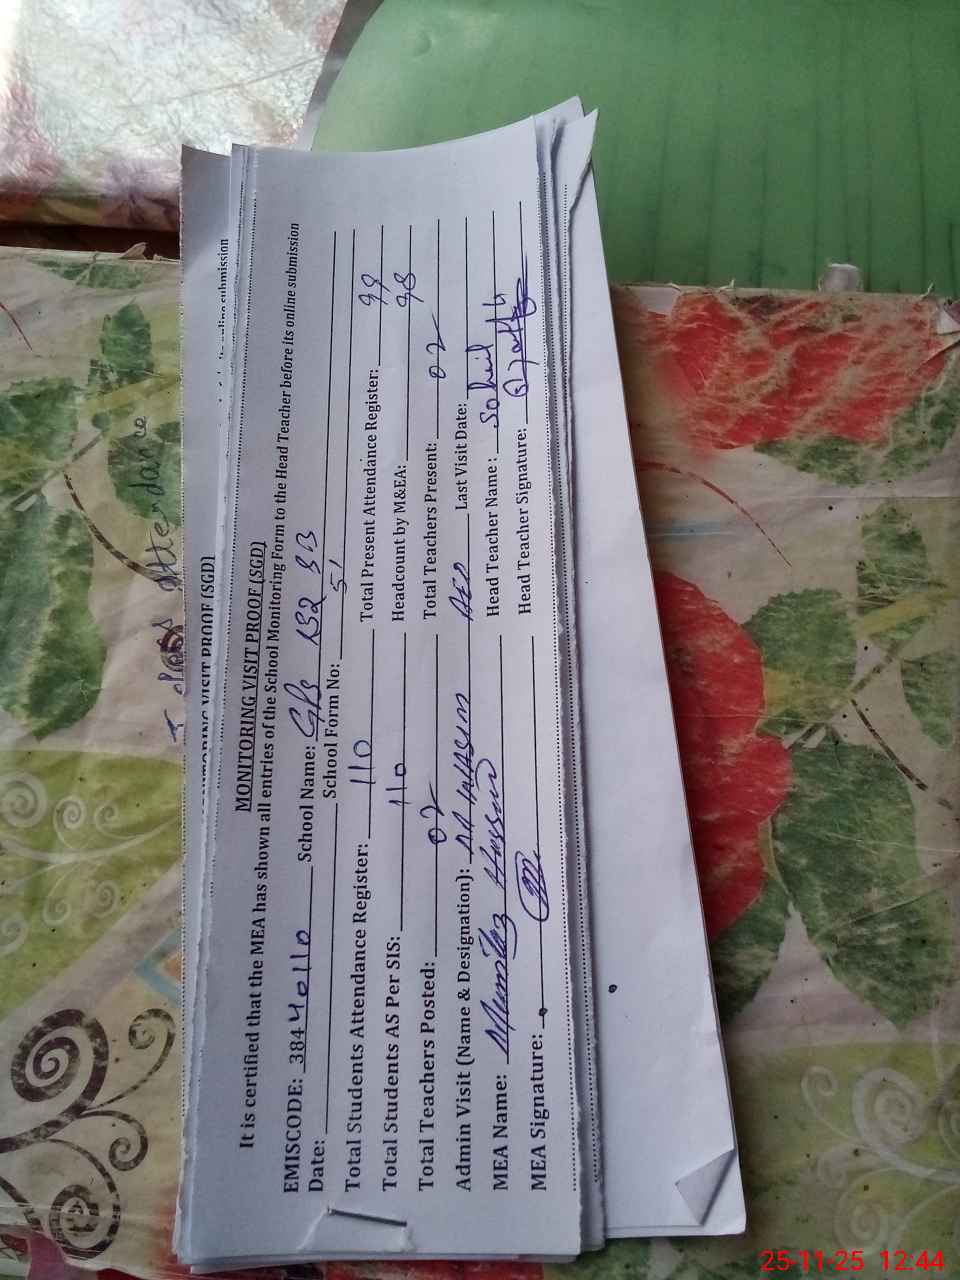 MONITORING VISIT PROOF (SGD)
online submission
MONITORING VISIT PROOF (SGD)
It is certified that the MEA has shown all entries of the School Monitoring Form to the Head Teacher before its online submission
EMISCODE: 38440110 School Name: GPS 132 SB
Date: School Form No: 51
Total Students Attendance Register: 110 Total Present Attendance Register: 99
Total Students AS Per SIS: 110 Headcount by M&EA: 98
Total Teachers Posted: 02 Total Teachers Present: 02
Admin Visit (Name & Designation): AEO Last Visit Date:
MEA Name: Mumtaz Hussain Head Teacher Name: Sohail
MEA Signature: Head Teacher Signature:
class attendance
25-11-25 12:44